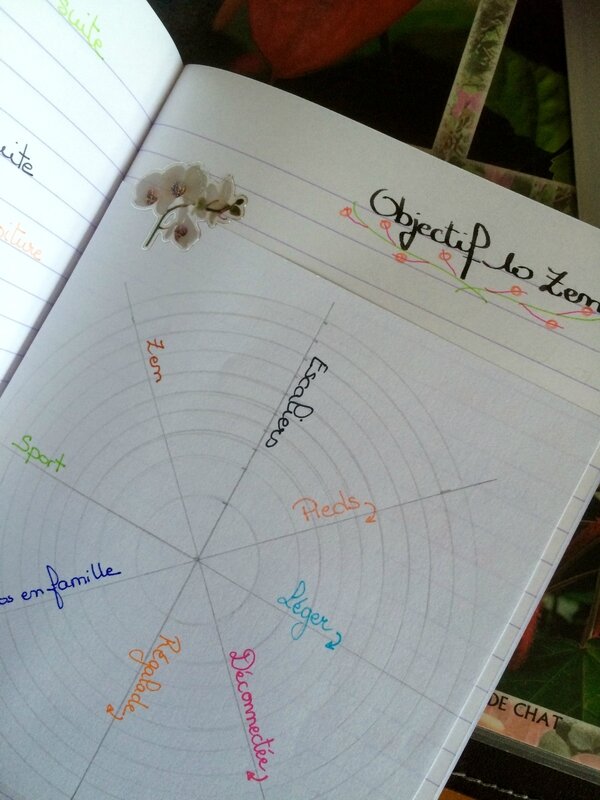 suite
Objectif 10 Zen
Zen
Escaliers
Sport
Pieds
en famille
Léger
Régalade
Déconnectée
DE CHAT